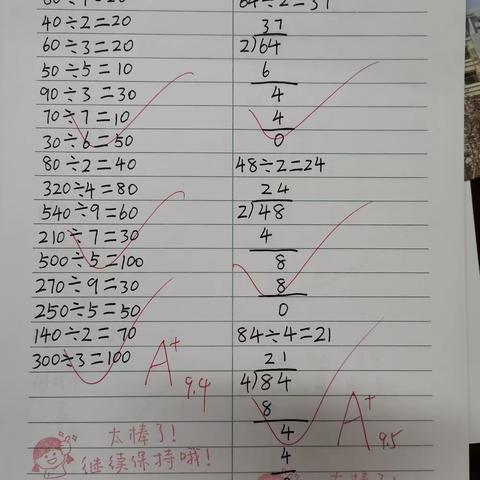 40÷2=20
60÷3=20
50÷5=10
90÷3=30
70÷7=10
30÷6=50
80÷2=40
320÷4=80
540÷9=60
210÷7=30
500÷5=100
270÷9=30
250÷5=50
140÷2=70
300÷3=100
A+
9.4
太棒了!
继续保持哦!
37
2)64
6
4
4
0
48÷2=24
24
2)48
4
8
8
0
84÷4=21
21
4)84
8
4
4
A+
9.5
太棒了!